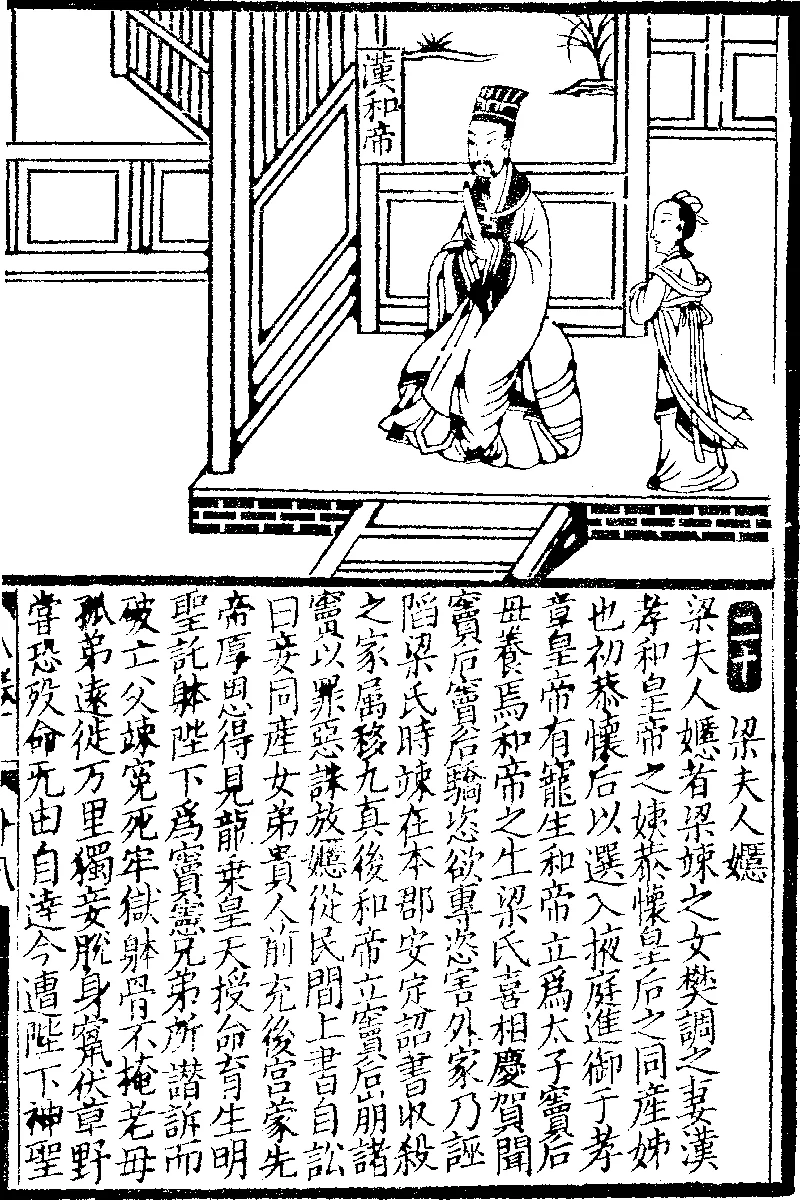 漢和帝
二十
梁夫人嫕
梁夫人嫕者梁竦之女樊調之妻漢
孝和皇帝之姨恭懷皇后之同産姊
也初恭懷后以選入掖庭進御于孝
章皇帝有寵生和帝立爲太子竇后
母養焉和帝之生梁氏喜相慶賀聞
竇后竇后驕恣欲專恣害外家乃誣
陷梁氏時竦在本郡安定詔書收殺
之家属移九真後和帝立竇后崩諸
竇以罪惡誅放嫕從民間上書自訟
曰妾同産女弟貴人前充後宮蒙先
帝厚恩得見龍乗皇天授命育生明
聖託躰陛下爲竇憲兄弟所譖訴而
破亡父竦寃死牢獄躰骨不掩老母
孤弟遠徙万里獨妾脫身竄伏草野
嘗恐殁命无由自逹今遭陛下神聖